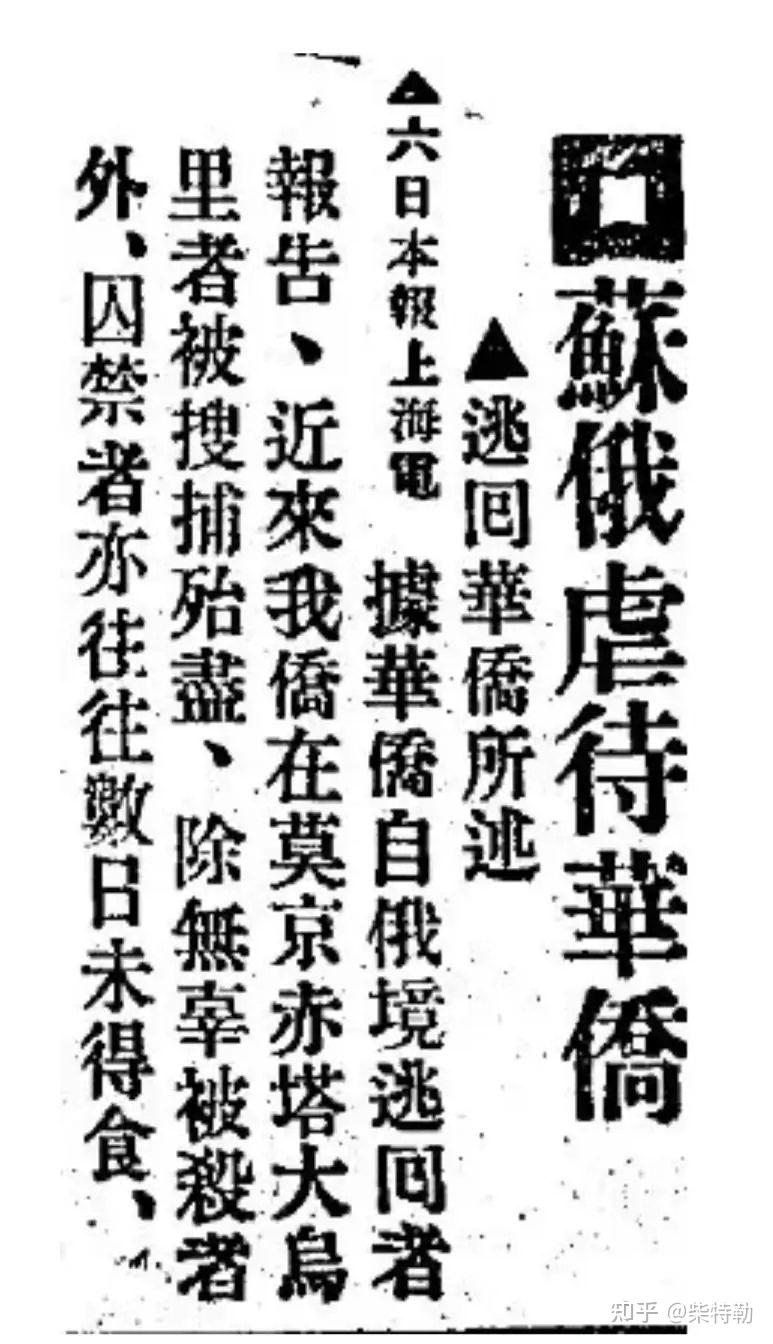 蘇俄虐待華僑
▲逃囘華僑所述
▲六日本報上海電 據華僑自俄境逃囘者
報告、近來我僑在莫京赤塔大烏
里者被搜捕殆盡、除無辜被殺者
外、囚禁者亦往往數日未得食、
知乎 @柴特勒